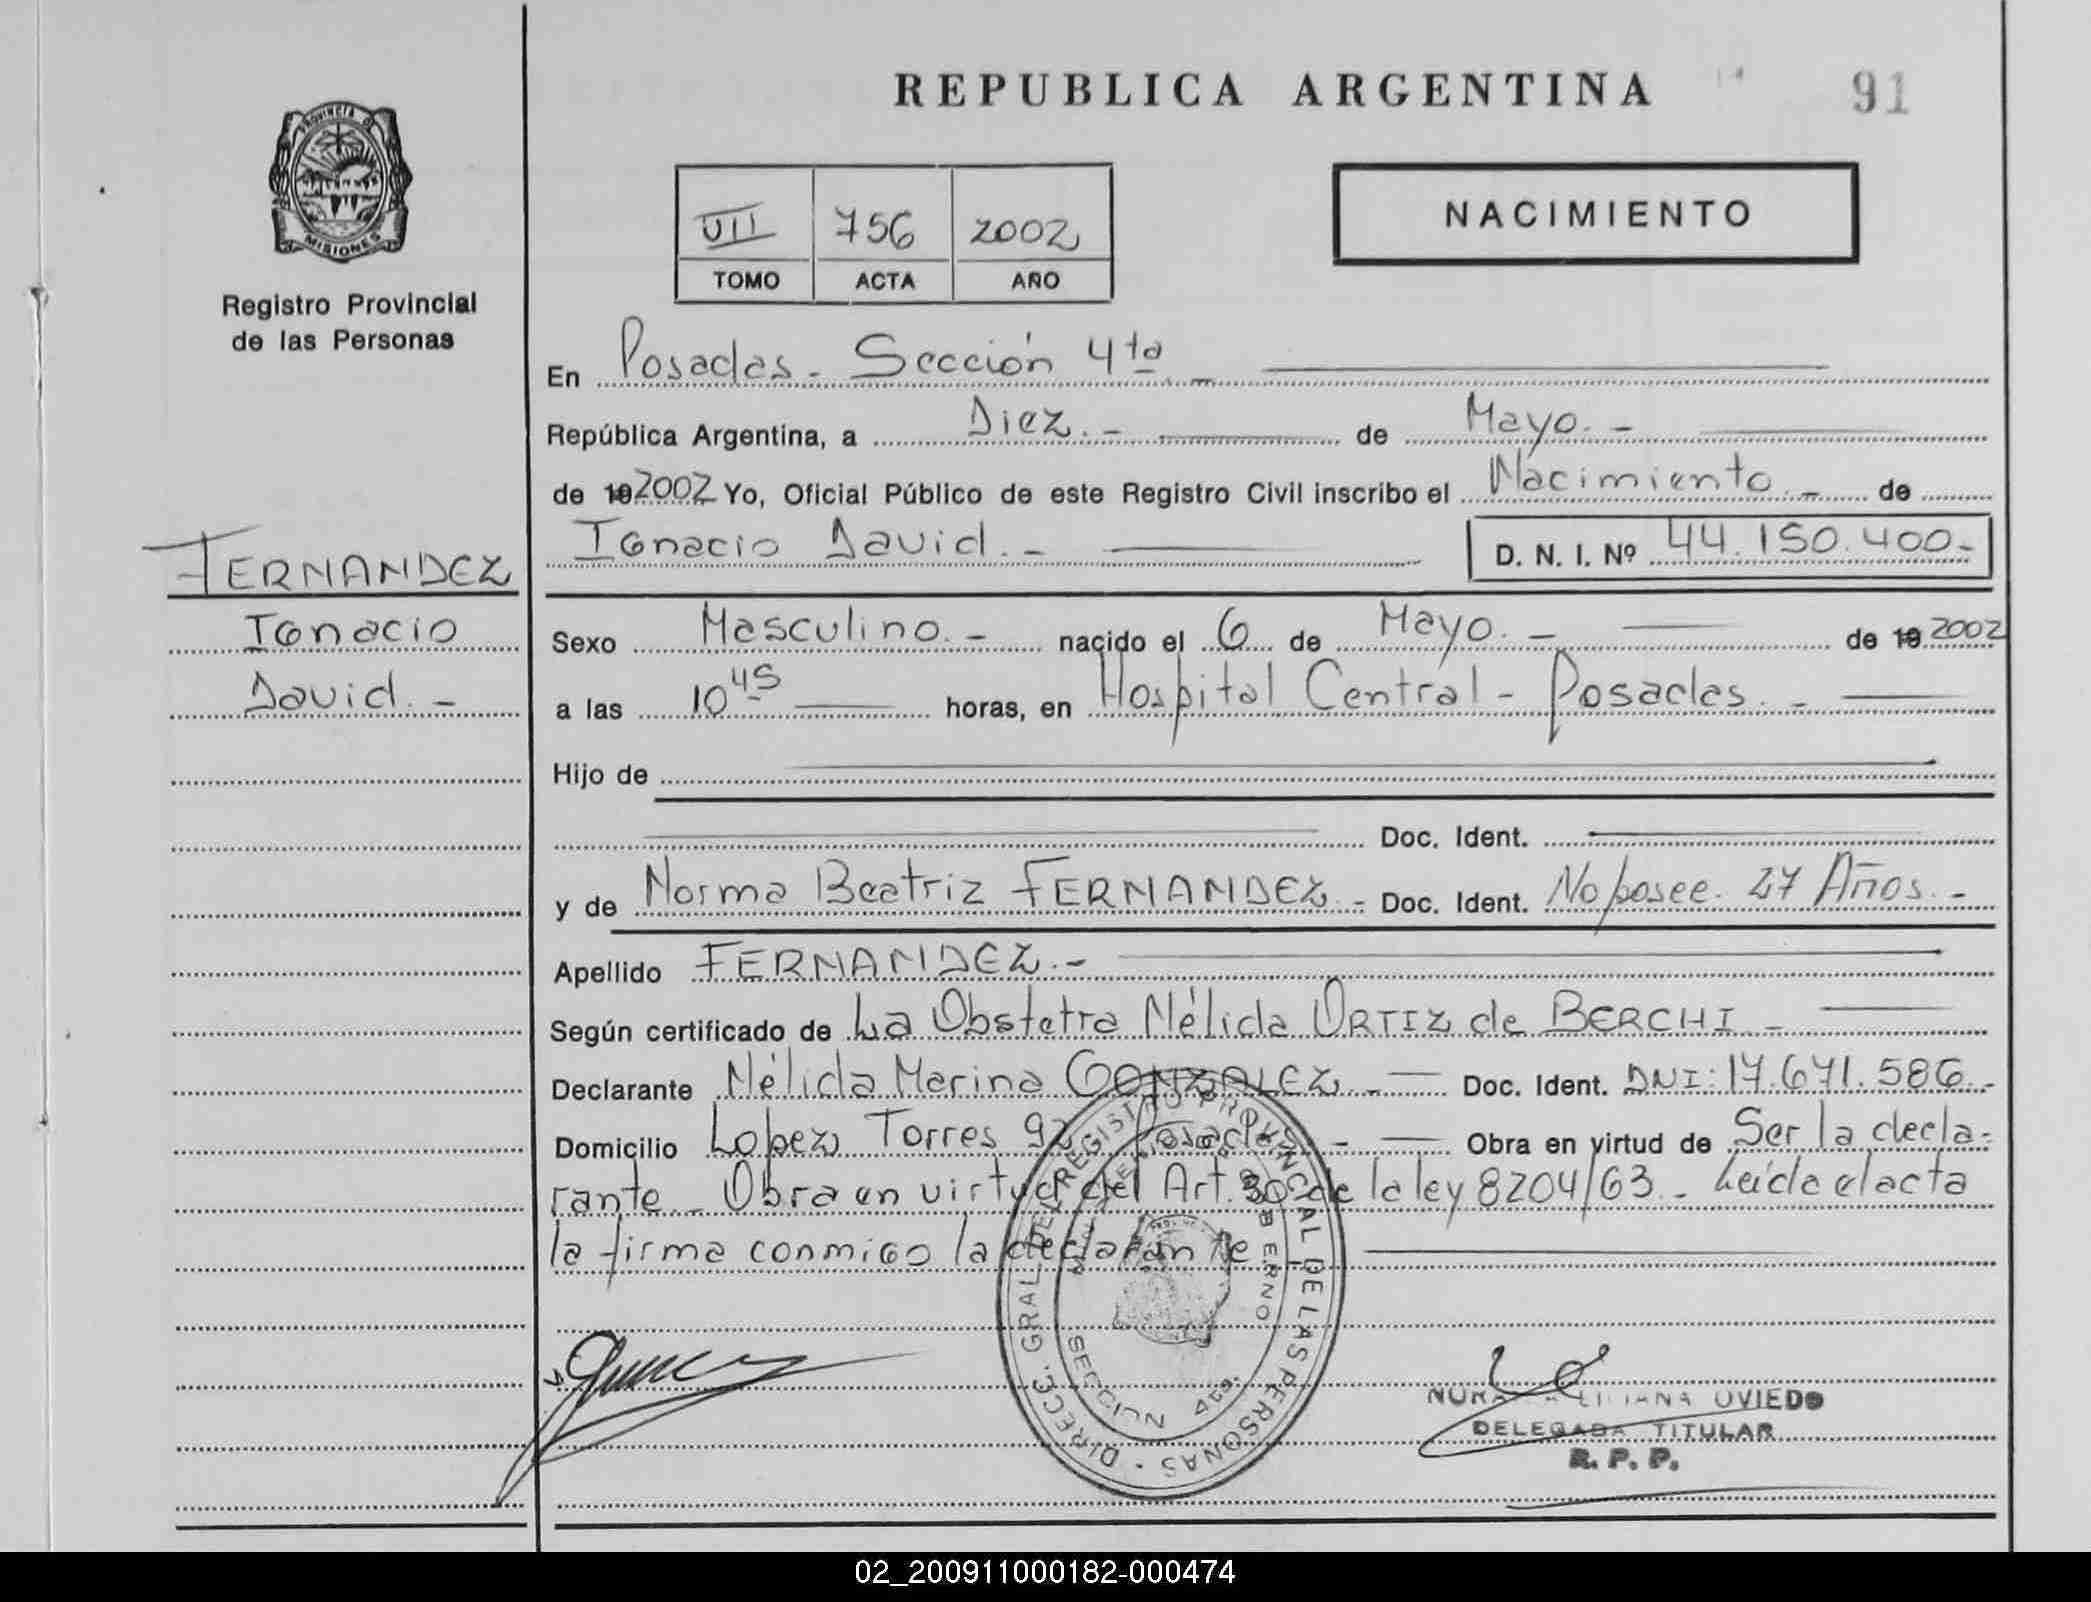 REPUBLICA ARGENTINA
91
PROVINCIA DE
MISIONES
Registro Provincial
de las Personas
VII 756 2002
TOMO ACTA AÑO
NACIMIENTO
En Posadas - Sección 4ta. -
República Argentina, a Diez. - de Mayo. -
de 19 2002 Yo, Oficial Público de este Registro Civil inscribo el Nacimiento. - de
Ignacio David. - D. N. I. Nº 44.150.400-
FERNANDEZ
Ignacio
David. -
Sexo Masculino. - nacido el 6 de Mayo. - de 19 2002
a las 10 45 horas, en Hospital Central - Posadas. -
Hijo de
Doc. Ident.
y de Norma Beatriz FERNANDEZ. - Doc. Ident. No posee. 27 Años. -
Apellido FERNANDEZ. -
Según certificado de La Obstetra Nélida ORTIZ de BERCHI -
Declarante Nélida Marina GONZALEZ. - Doc. Ident. DNI: 17.671.586. -
Domicilio Lopez Torres 92 Posadas - Obra en virtud de Ser la decla-
rante. - Obra en virtud del Art. 30 de la ley 8204/63 - Leída el acta
la firma conmigo la declarante
DIRECC. GRAL. DEL REGISTRO PROVINCIAL DE LAS PERSONAS
GOBIERNO
SECCION 4ta.
LILIANA OVIEDO
DELEGADA TITULAR
R. P. P.
02_200911000182-000474